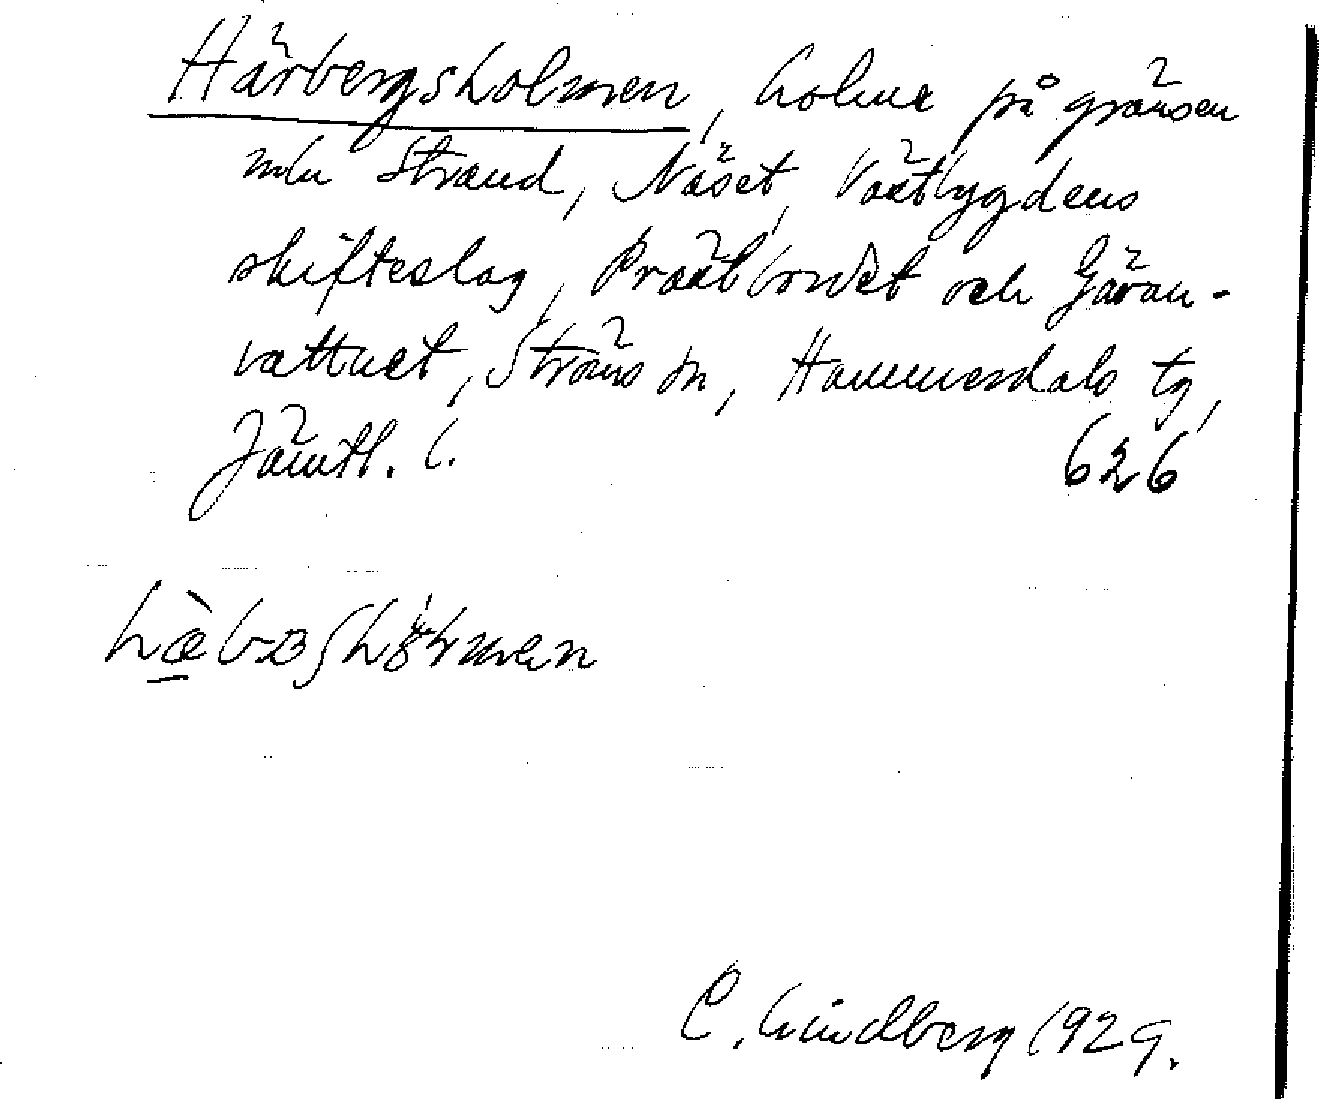 Härbergsholmen, holme på gränsen
mln Strand, Näset, Växtbygdens
skifteslag, Prästbordet och Gåran-
vattnet, Ströms sn, Hammerdals tg,
Jämtl. l. 626
C. Lindberg 1929.